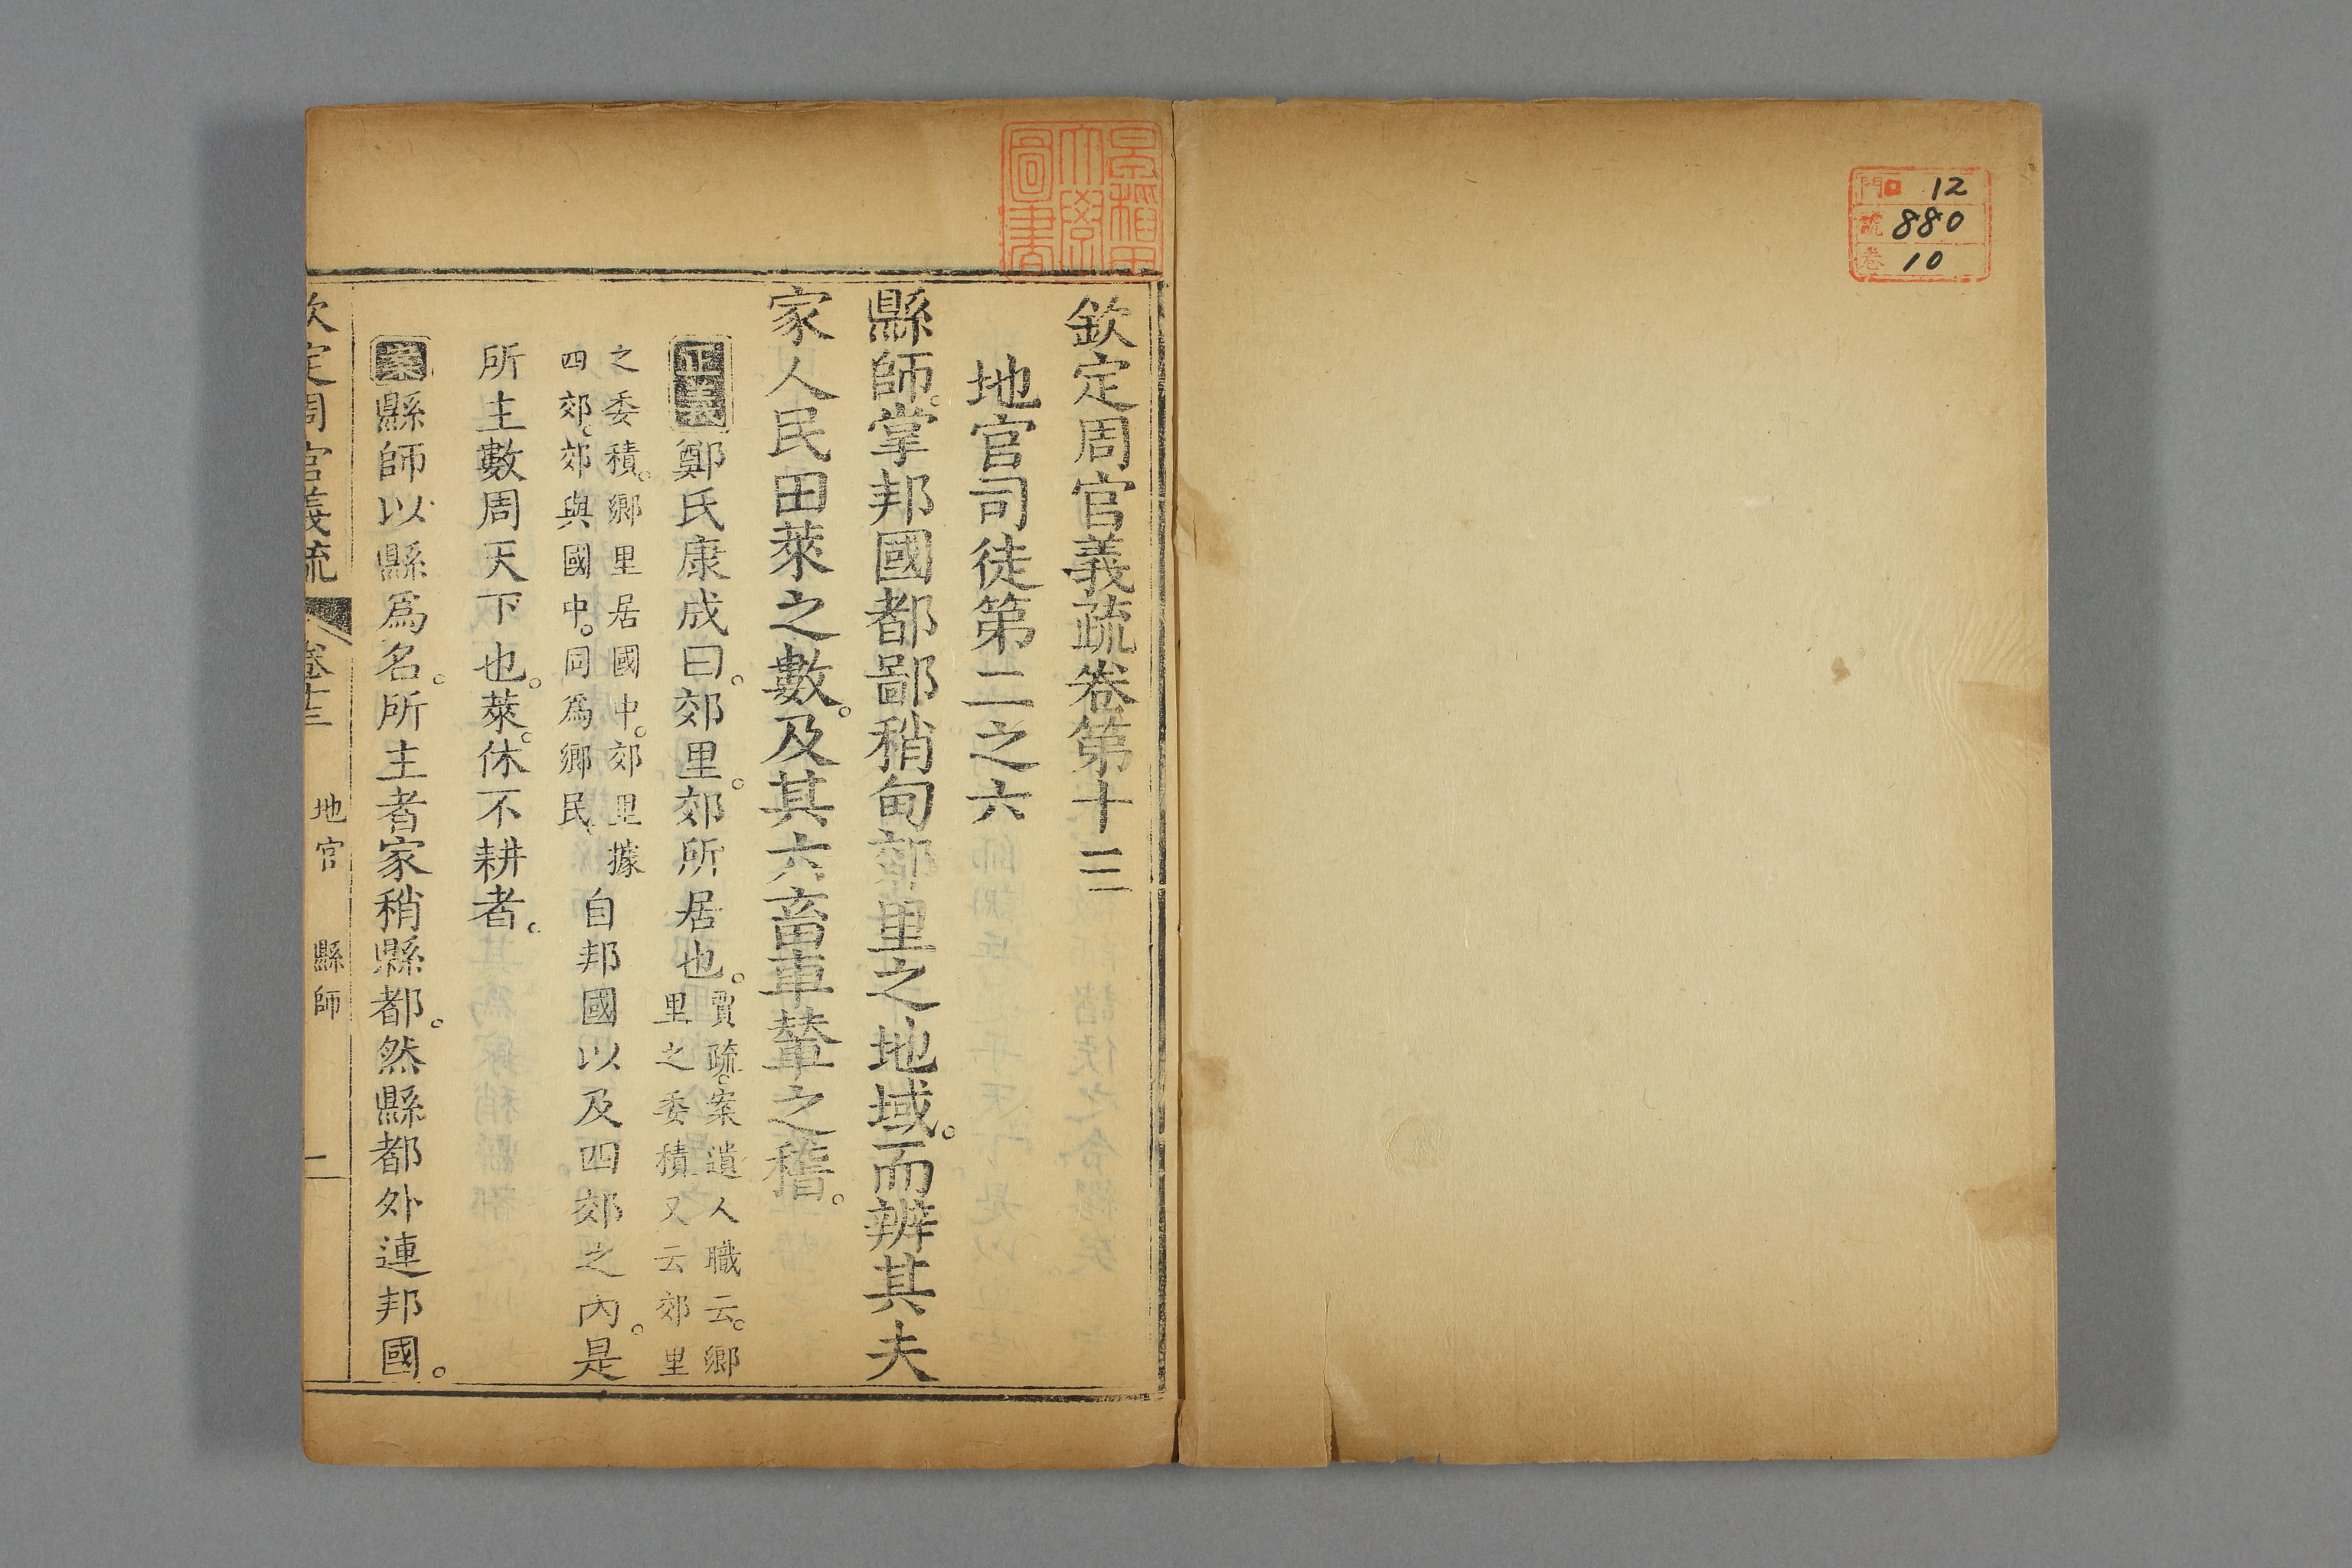 門 12
號 880
卷 10
早稲田
大學
圖書
欽定周官義疏卷第十三
地官司徒第二之六
縣師。掌邦國都鄙稍甸郊里之地域。而辨其夫
家人民田萊之數。及其六畜車輦之稽。
正義鄭氏康成曰。郊里。郊所居也。賈疏。案遺人職云。鄉
里之委積又云郊里
之委積。鄉里居國中。郊里據
四郊。郊與國中。同爲鄉民。自邦國以及四郊之內。是
所主數周天下也。萊。休不耕者。
案縣師以縣爲名。所主者家稍縣都。然縣都外連邦國。
欽定周官義疏 卷十三 地官 縣師 一